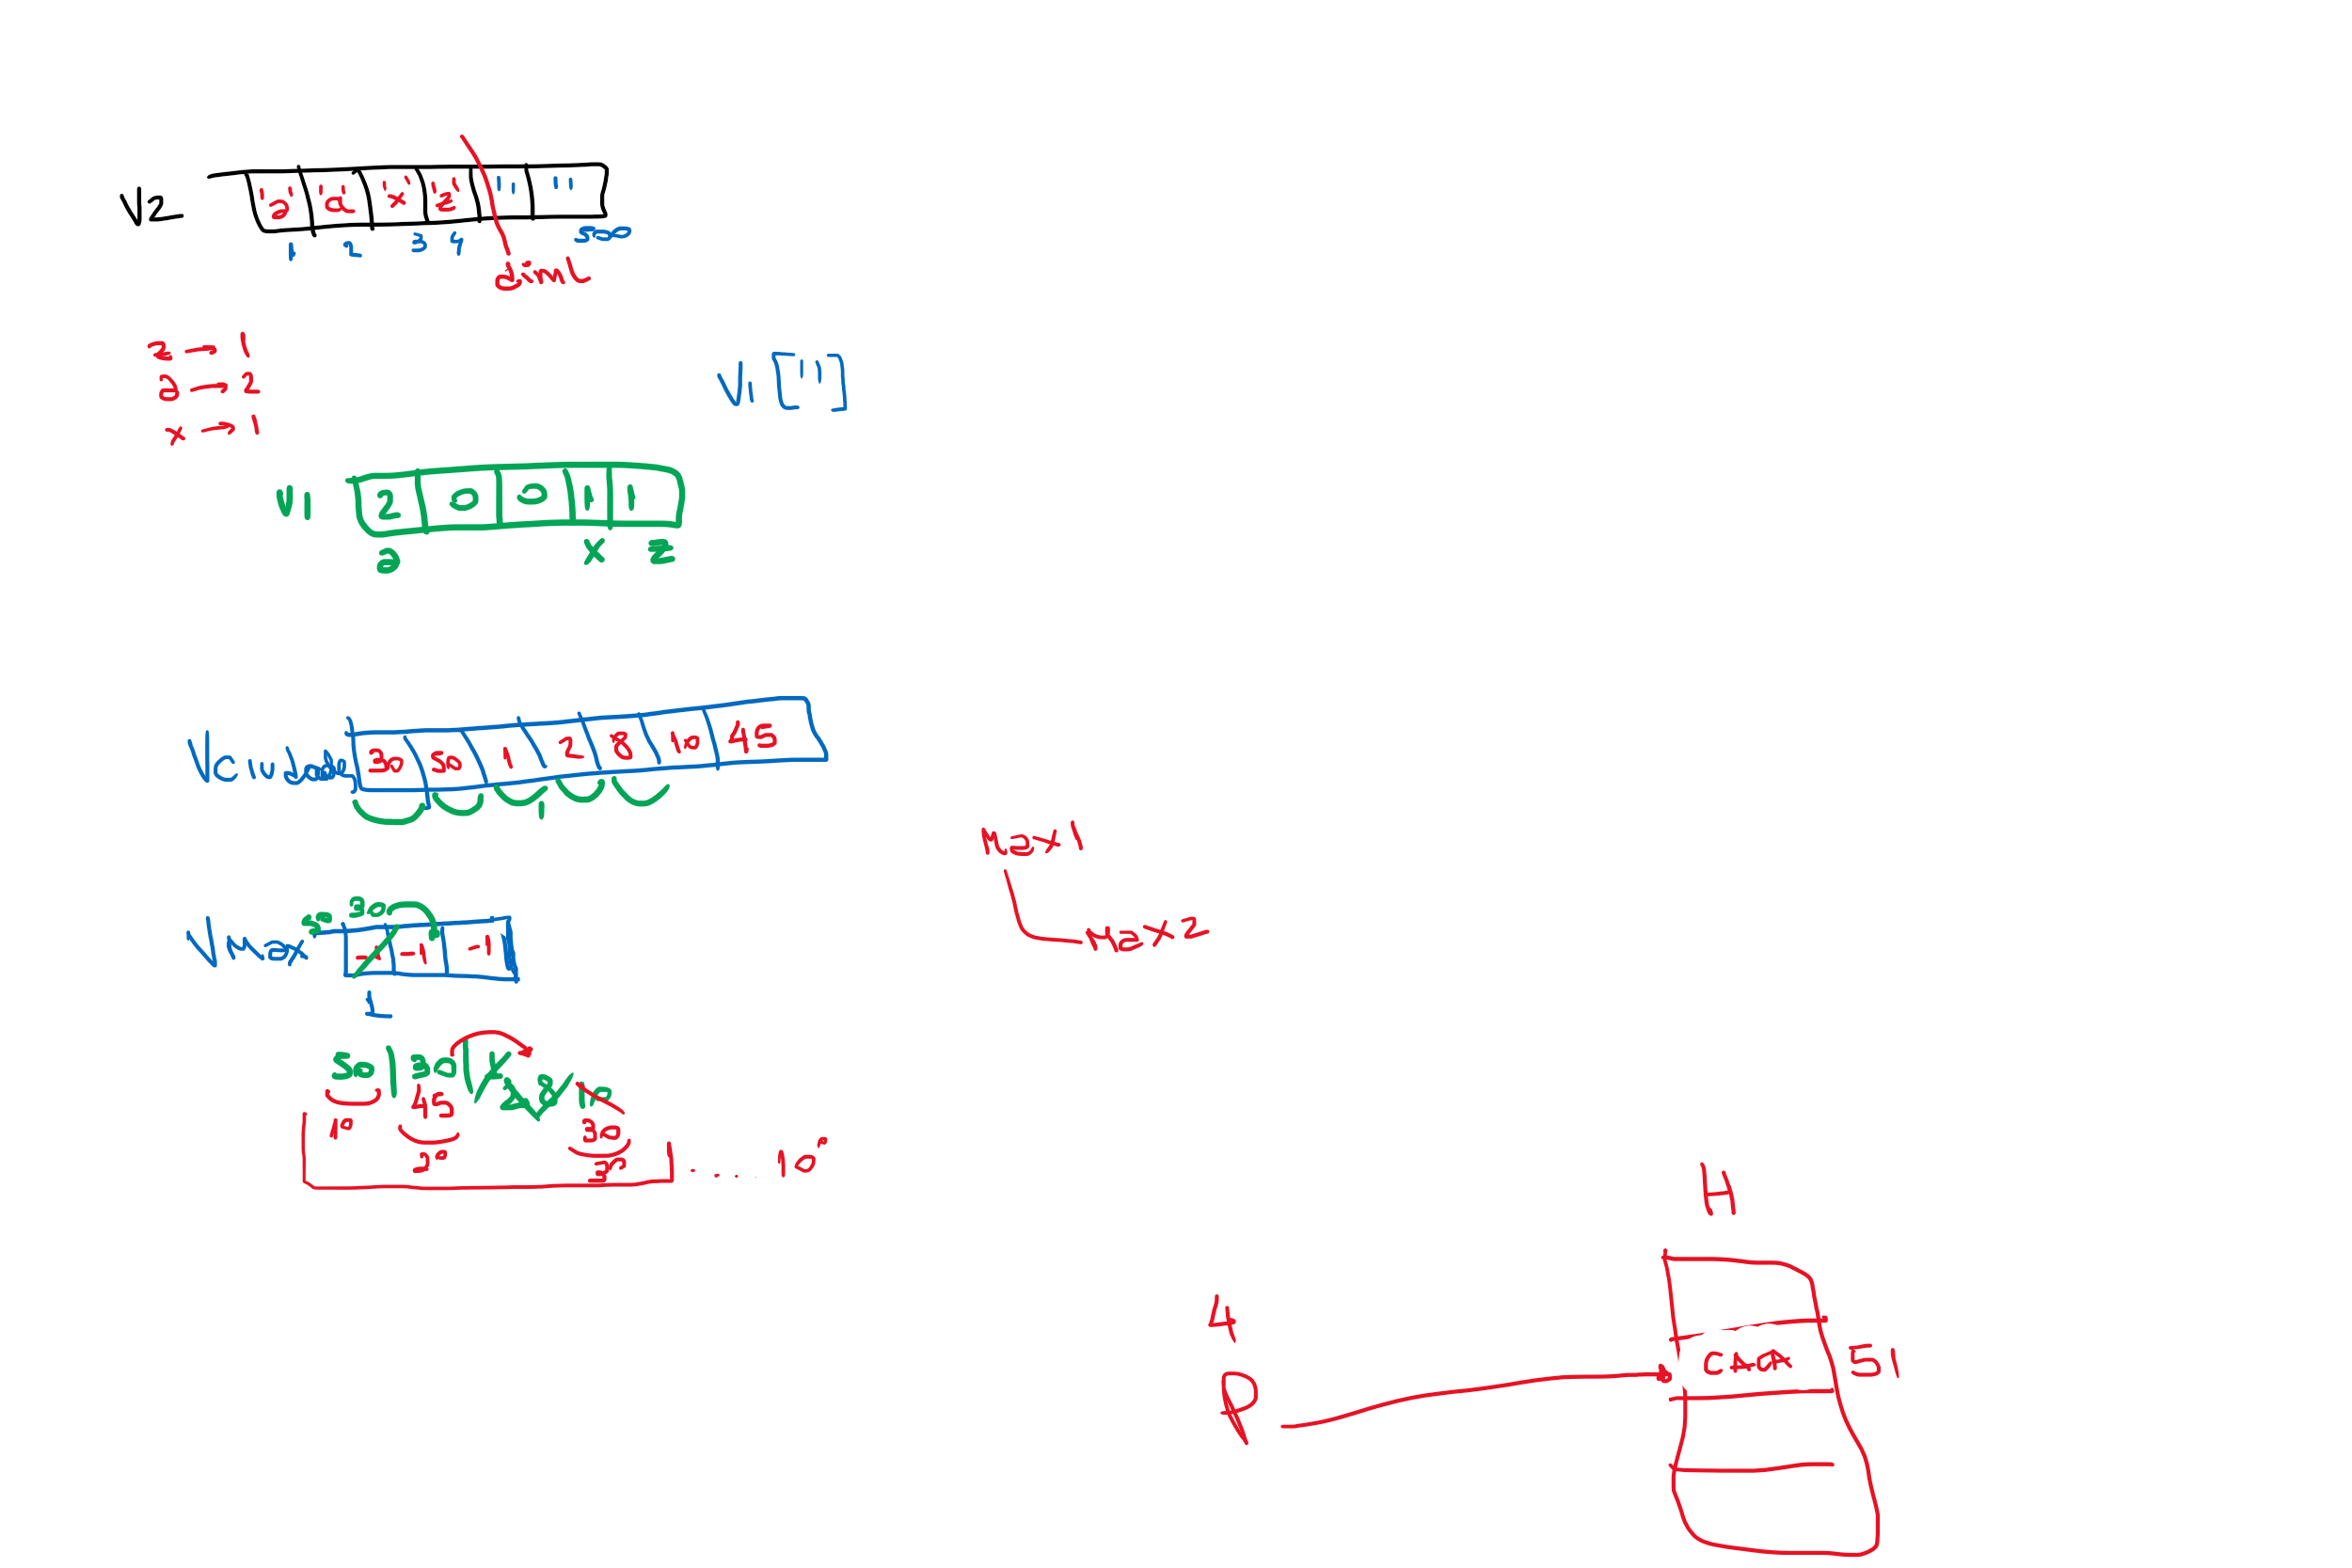 V2 "a" "a" "x" "z" " " " "
1 2 3 4 500
diml
z → 1
a → 2
x → 1
V1 [" "]
V1 2 0 0 1 1
a x z
30 50 1 2 8 10 45
1
max1
max2
Vmax 50 30 -1 -1 -1
1
50 | 30 | 1 2 8 10
45 30
1° 2° 3° .... 10°
H
4
P
51